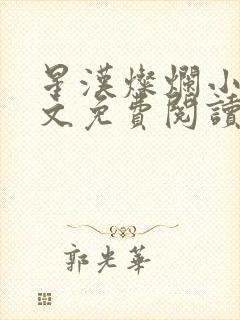 星漢燦爛小
文免費閱讀
郭光華